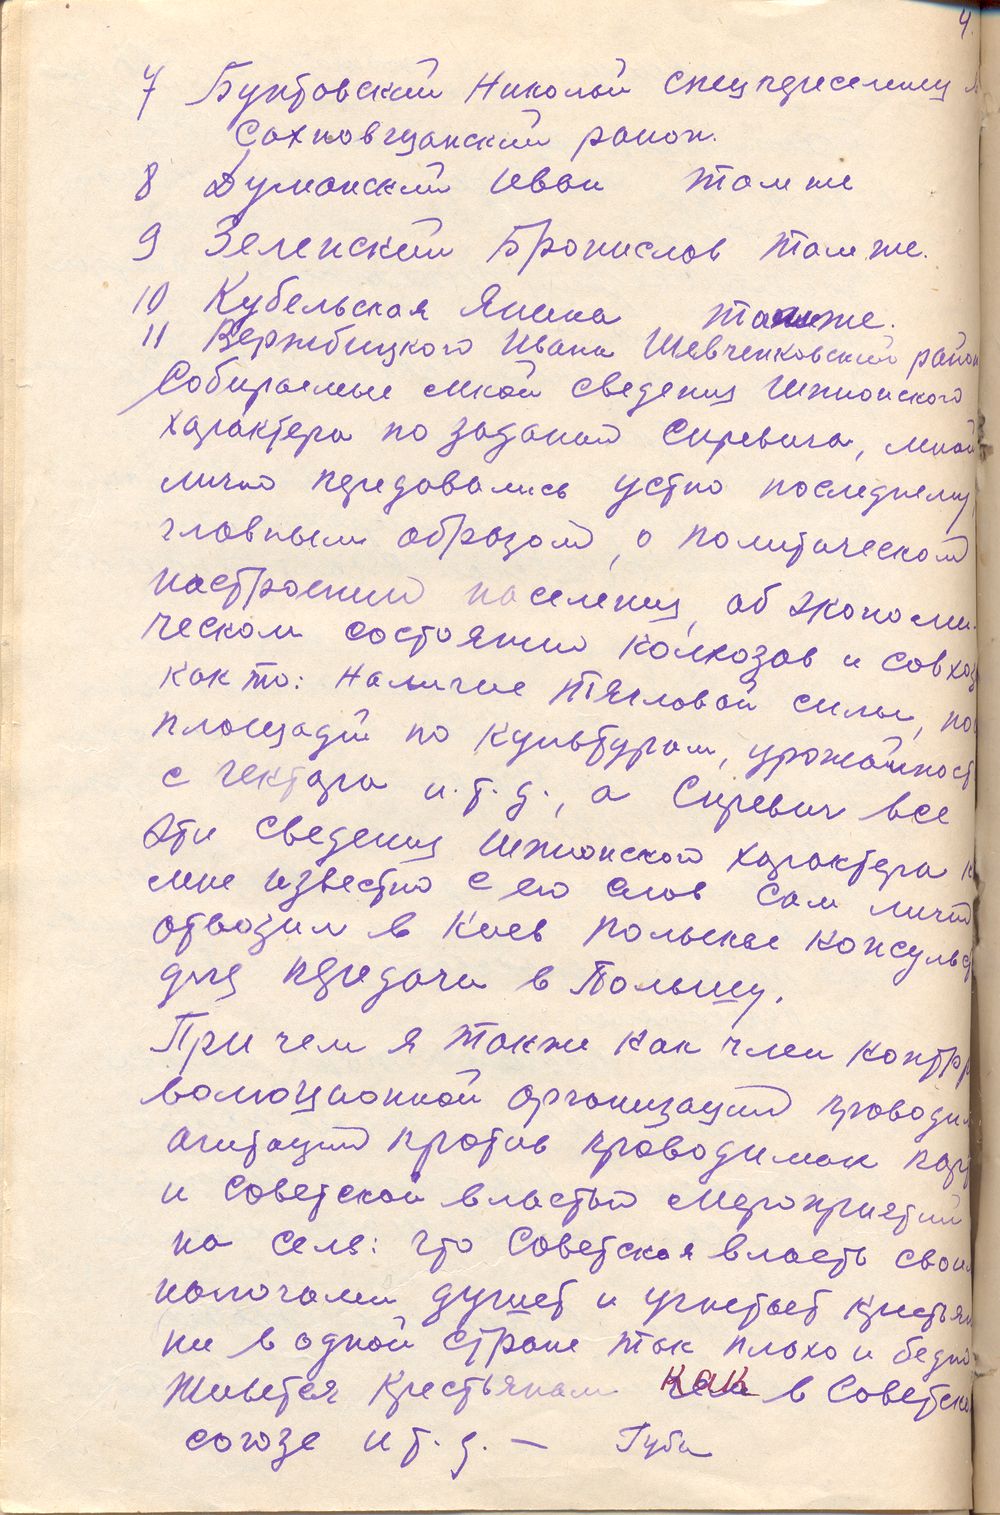 4.
7 Бунтовский Николай спецпереселенец
Сахновщанский район.
8 Думанский Иван там же
9 Зеленский Бронислов там же.
10 Кубельская Янина там же.
11 Вержбицкого Ивана Шевченковский район
Собираемые мной сведения шпионского
характера по заданию Сиревича, мной
лично передавались устно последнему,
главным образом, о политическом
настроении населения, об экономи-
ческом состоянии колхозов и совхоз
как то: наличие тягловой силы, по
площадей по культурам, урожайност
с гектара и.т.д., а Сиревич все
эти сведения шпионского характера к
мне известно с его слов сам лично
отвозил в Киев польское консульс
для передачи в Польшу.
При чем я также как член контрр
волюционной организации проводил
агитацию против проводимых пар
и советской властью мероприятий
на селе: что Советская власть свои
налогами душит и угнетает крестьян
ни в одной стране так плохо и бедно
живется крестьянам как в Советск
союзе и т.д. — Губа